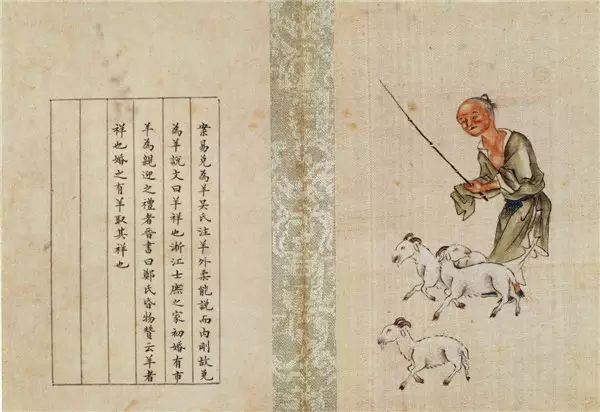 案易兑為羊吴氏注羊外柔能説而内剛故兑
為羊説文曰羊祥也浙江士庶之家初婚有市
羊為親迎之禮者晉書曰鄭氏昏物賛云羊者
祥也婚之有羊取其祥也